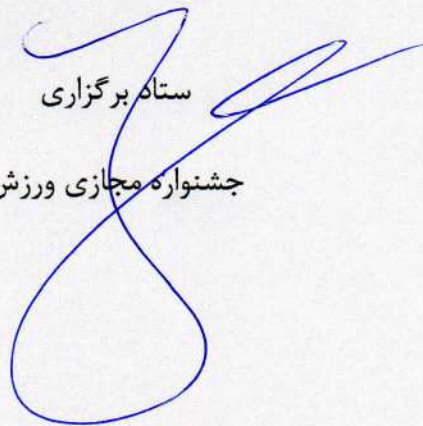 ستاد برگزاری
جشنواره مجازی ورزش